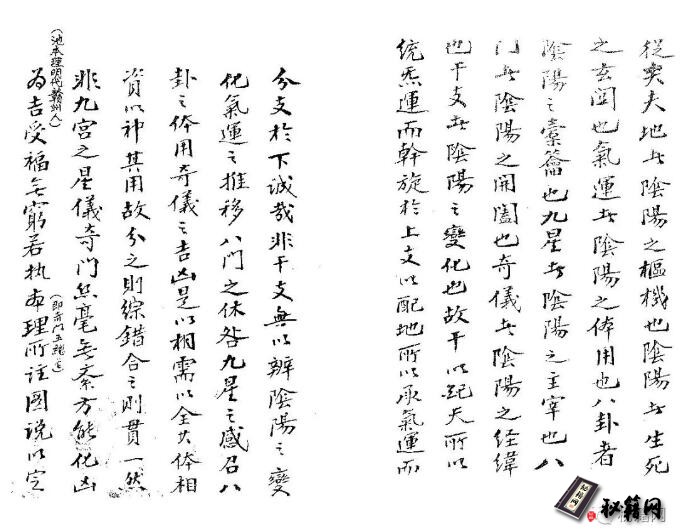 從奧夫地者陰陽之樞機也陰陽者生死
之玄関也氣運者陰陽之体用也八卦者
陰陽之橐籥也九星者陰陽之主宰也八
門者陰陽之開闔也奇儀者陰陽之経緯
也干支者陰陽之變化也故干以紀天所以
統炁運而幹旋於上支以配地所以承氣運而
分支於下诚哉非干支無以辨陰陽之變
化氣運之推移八门之休咎九星之感召八
卦之体用奇儀之吉凶是以相需以全其体相
資以神其用故分之則綜錯合之則貫一然
非九宫之星儀奇门丝毫無紊方能化凶
為吉受福無窮若执本理所註圖说以定
(即奇门五總龟)
(池本理明代赣州人)
秘籍网
秘籍网